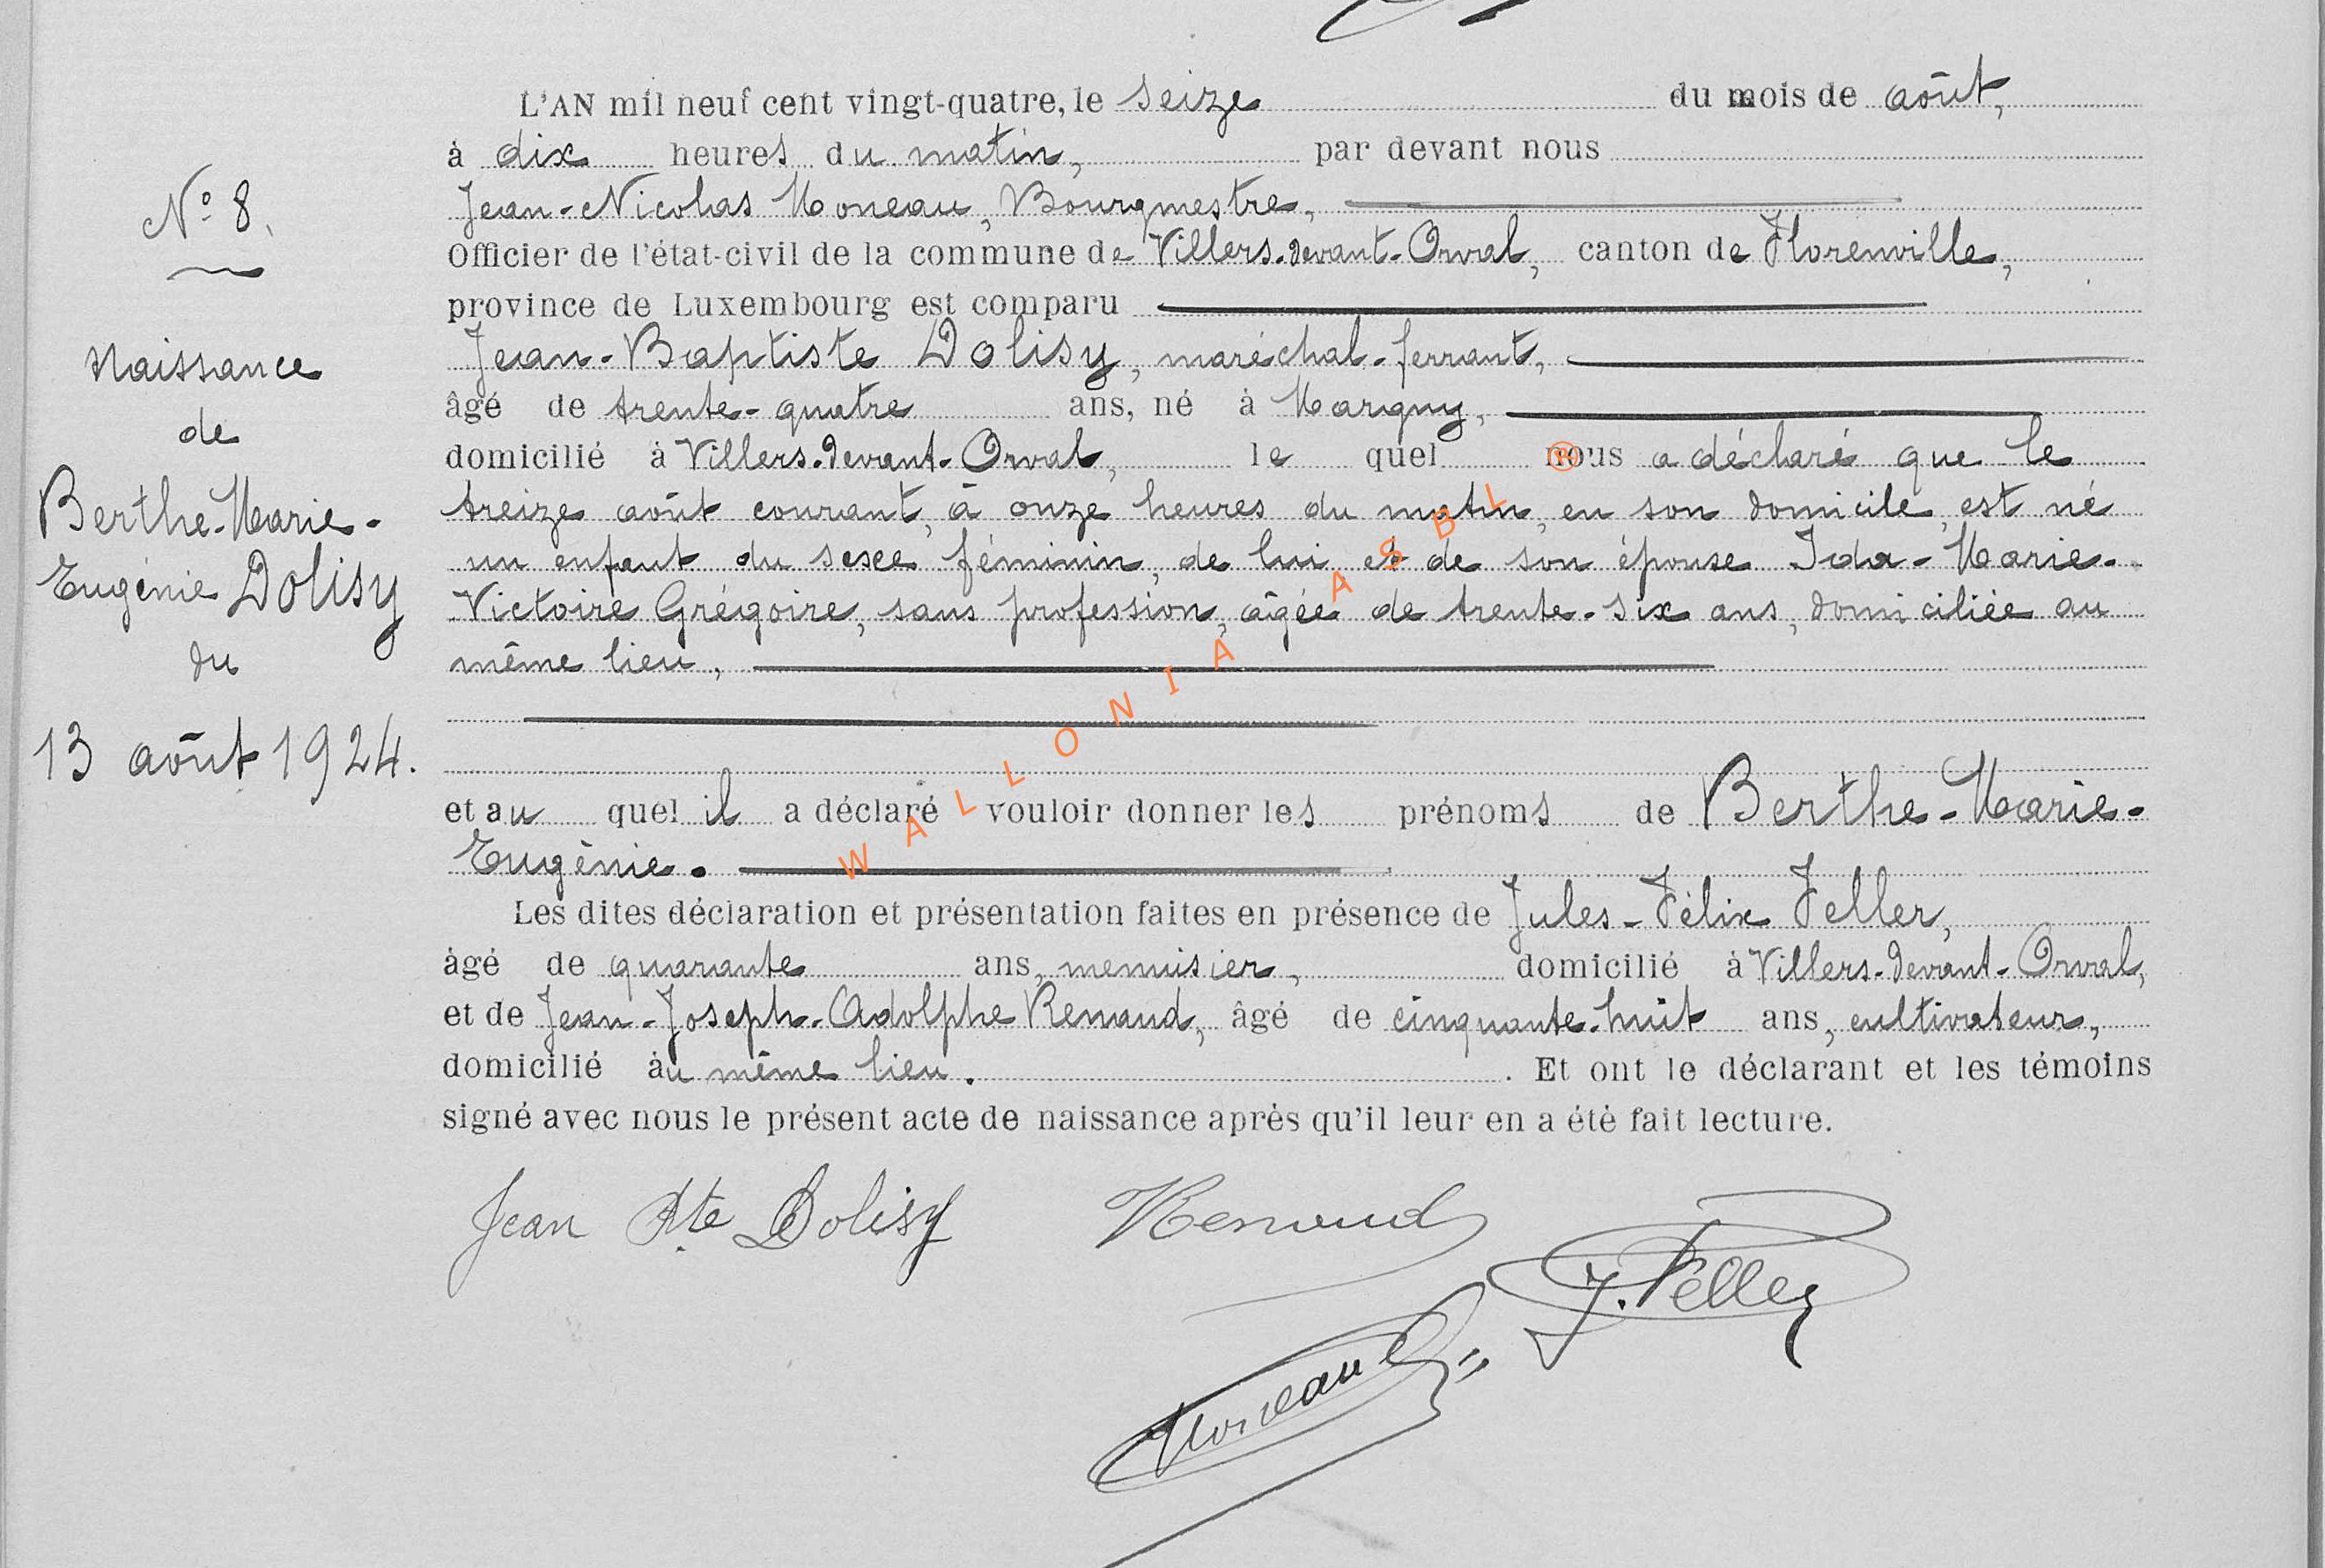 L'AN mil neuf cent vingt-quatre, le seize du mois de août,
à dix heures du matin, par devant nous
Jean-Nicolas Moneau, Bourgmestre,
Officier de l'état-civil de la commune de Villers-devant-Orval, canton de Florenville,
province de Luxembourg est comparu
Jean-Baptiste Dolisy, maréchal-ferrant,
âgé de trente-quatre ans, né à Margny,
domicilié à Villers-devant-Orval, le quel nous a déclaré que le
treize août courant, à onze heures du matin, en son domicile, est né
un enfant du sexe féminin, de lui et de son épouse Ida-Marie-
Victoire Grégoire, sans profession, âgée de trente-six ans, domiciliée au
même lieu,
et au quel il a déclaré vouloir donner les prénoms de Berthe-Marie-
Eugénie.
Les dites déclaration et présentation faites en présence de Jules-Félix Feller,
âgé de quarante ans, menuisier, domicilié à Villers-devant-Orval,
et de Jean-Joseph-Adolphe Renaud, âgé de cinquante-huit ans, cultivateur,
domicilié au même lieu. . Et ont le déclarant et les témoins
signé avec nous le présent acte de naissance après qu'il leur en a été fait lecture.
Jean Bte Dolisy Renaud
J. Feller
Moneau
N° 8.
Naissance
de
Berthe-Marie-
Eugénie Dolisy
du
13 août 1924.
WALLONIA ASBL ®